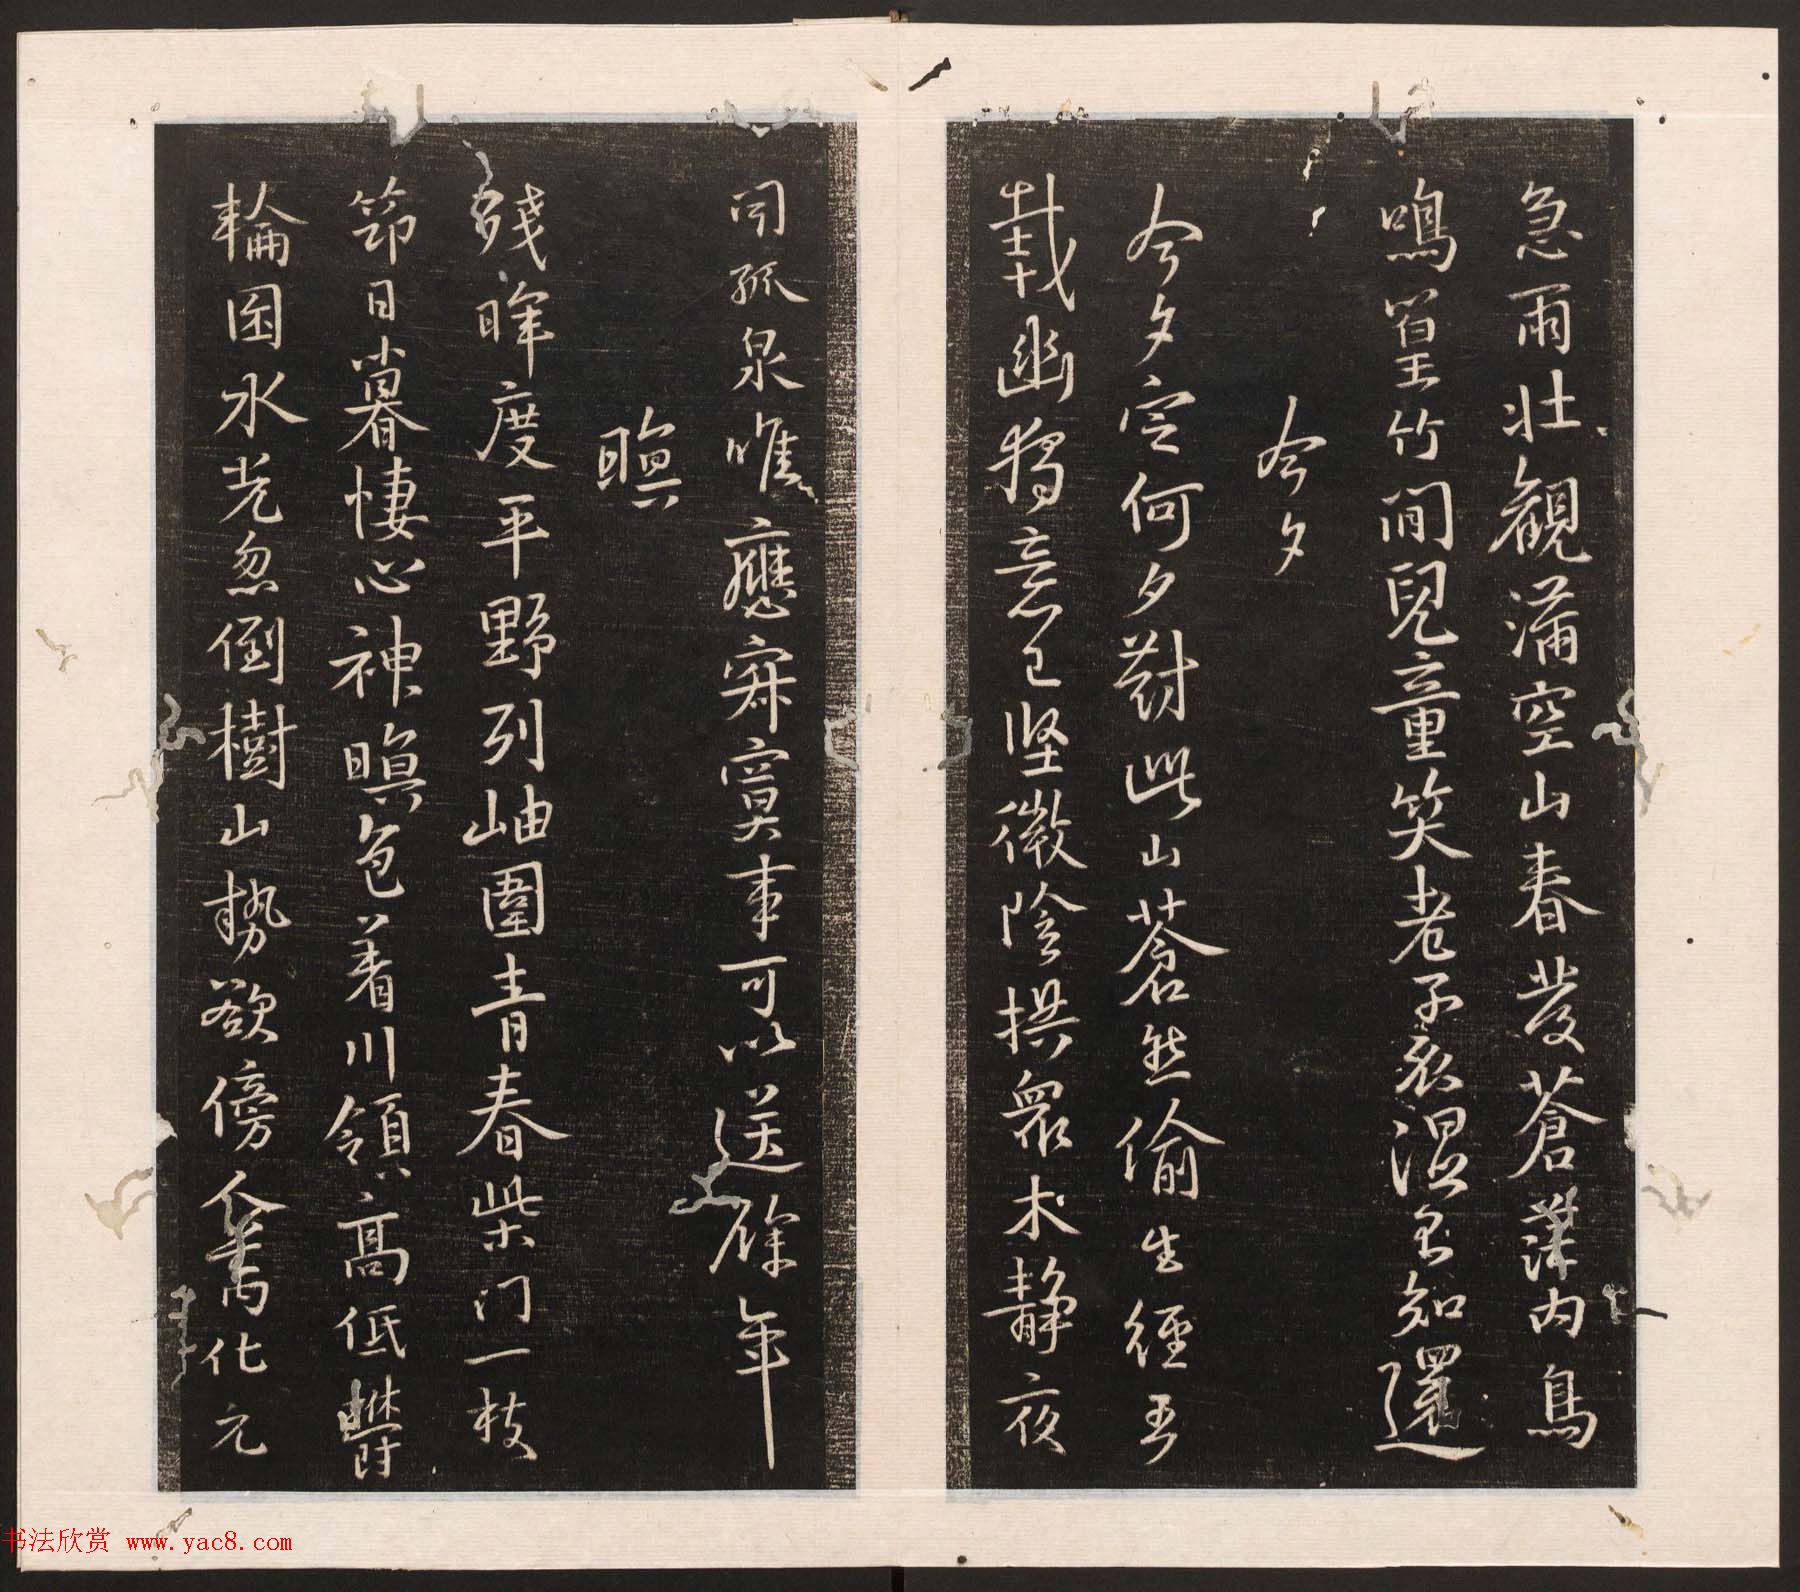 急雨壮觀滿空山春發蒼莽內鳥
鳴篁竹間兒童笑老子衣濕不知還
今夕
今夕定何夕對此山蒼然偷生經五
載幽獨意已堅微陰拱眾木靜夜
聞孤泉唯應寂寞事可以送餘年
暝
殘暉度平野列岫圍青春柴門一枝
筇日暮悽心神暝色著川嶺高低鬱
輪囷水光忽倒樹山勢欲傍人萬化元
书法欣赏 www.yac8.com